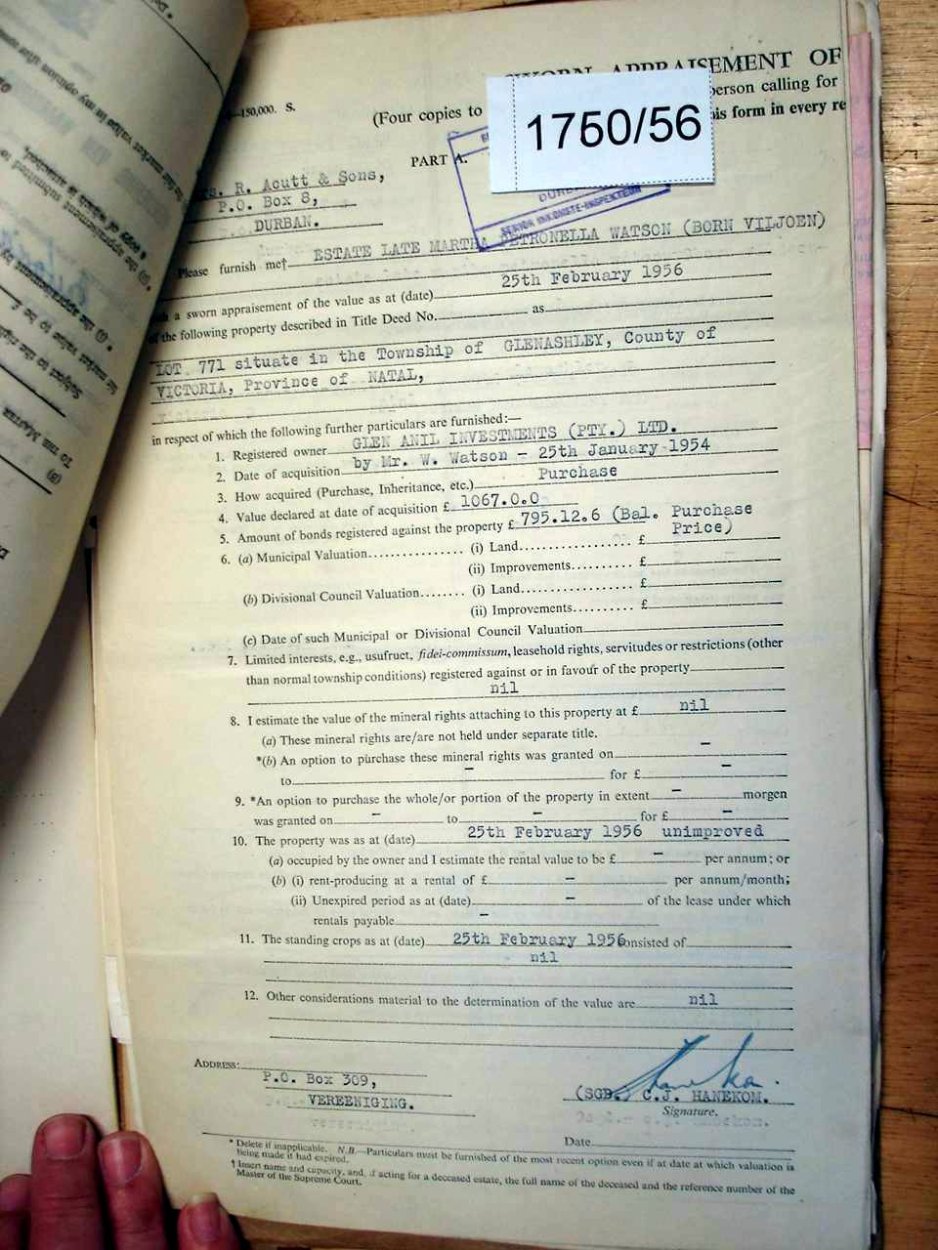 SWORN APPRAISEMENT OF
—150,000. S.
(Four copies to
person calling for
this form in every re
1750/56
PART A.
R. Acutt & Sons,
P.O. Box 8,
DURBAN.
Please furnish me† ESTATE LATE MARTHA PETRONELLA WATSON (BORN VILJOEN)
a sworn appraisement of the value as at (date) 25th February 1956
of the following property described in Title Deed No. as
LOT 771 situate in the Township of GLENASHLEY, County of
VICTORIA, Province of NATAL,
in respect of which the following further particulars are furnished:—
1. Registered owner GLEN ANIL INVESTMENTS (PTY.) LTD.
2. Date of acquisition by Mr. W. Watson - 25th January 1954
3. How acquired (Purchase, Inheritance, etc.) Purchase
4. Value declared at date of acquisition £ 1067.0.0
5. Amount of bonds registered against the property £ 795.12.6 (Bal. Purchase
Price)
6. (a) Municipal Valuation (i) Land £
(ii) Improvements £
(b) Divisional Council Valuation (i) Land £
(ii) Improvements £
(c) Date of such Municipal or Divisional Council Valuation
7. Limited interests, e.g., usufruct, fidei-commissum, leasehold rights, servitudes or restrictions (other
than normal township conditions) registered against or in favour of the property
nil
8. I estimate the value of the mineral rights attaching to this property at £ nil
(a) These mineral rights are/are not held under separate title.
*(b) An option to purchase these mineral rights was granted on -
to - for £ -
9. *An option to purchase the whole/or portion of the property in extent - morgen
was granted on - to - for £ -
10. The property was as at (date) 25th February 1956 unimproved
(a) occupied by the owner and I estimate the rental value to be £ - per annum; or
(b) (i) rent-producing at a rental of £ - per annum/month;
(ii) Unexpired period as at (date) - of the lease under which
rentals payable -
11. The standing crops as at (date) 25th February 1956 consisted of
nil
12. Other considerations material to the determination of the value are nil
ADDRESS:
P.O. Box 309,
VEREENIGING.
(SGD. C.J. HANEKOM.
Signature.
Date
* Delete if inapplicable. N.B.—Particulars must be furnished of the most recent option even if at date at which valuation is
being made it had expired.
† Insert name and capacity, and, if acting for a deceased estate, the full name of the deceased and the reference number of the
Master of the Supreme Court.